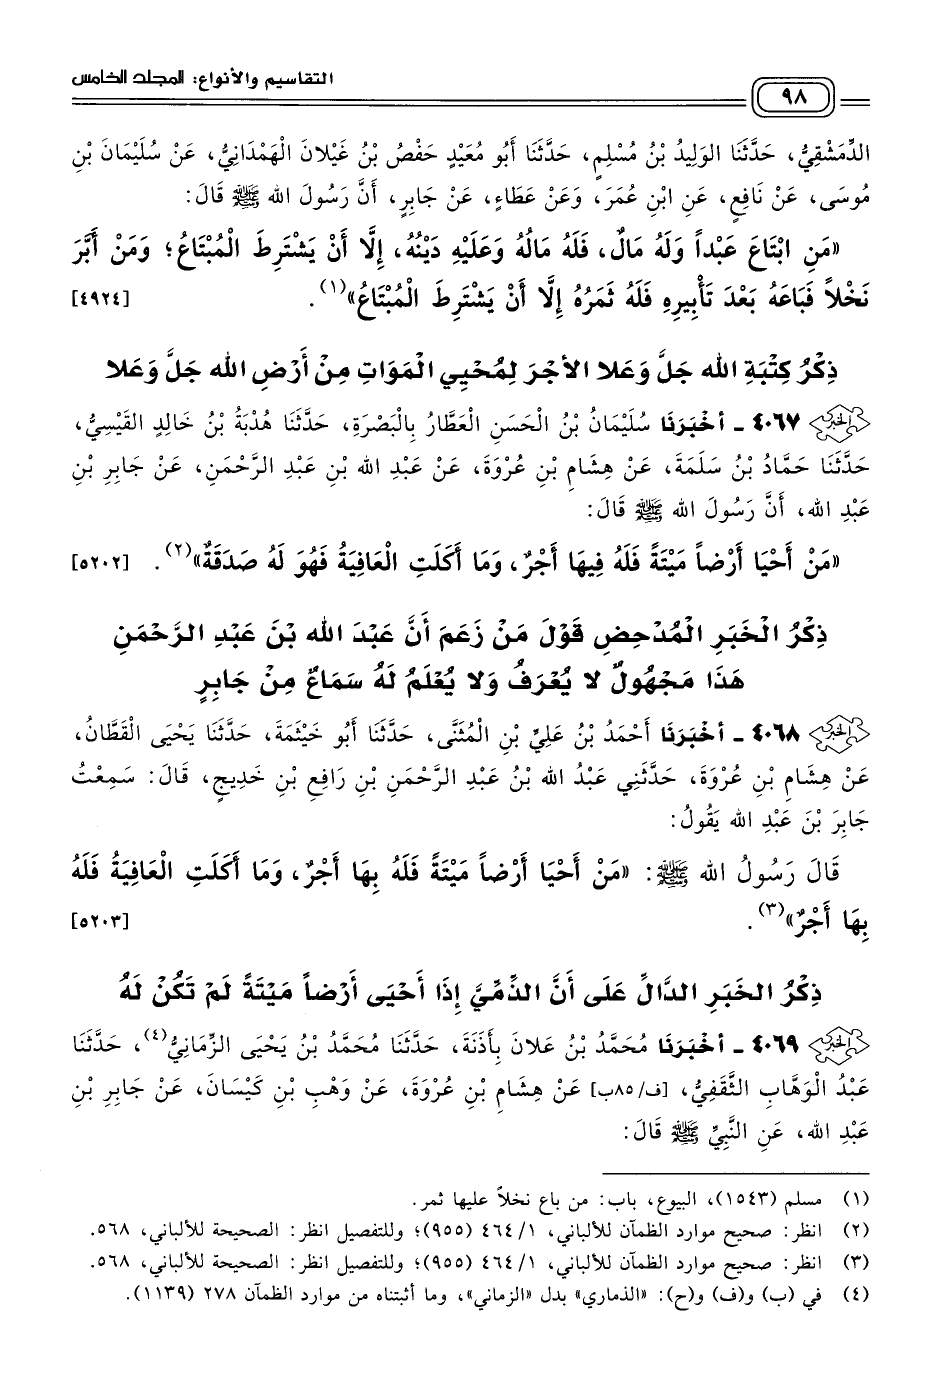 التقاسيم والأنواع: المجلد الخامس
٩٨
الدِّمَشْقِيُّ، حَدَّثَنَا الوَلِيدُ بْنُ مُسْلِمٍ، حَدَّثَنَا أَبُو مُعَيْدٍ حَفْصُ بْنُ غَيْلَانَ الْهَمْدَانِيُّ، عَنْ سُلَيْمَانَ بْنِ
مُوسَى، عَنْ نَافِعٍ، عَنِ ابْنِ عُمَرَ، وَعَنْ عَطَاءٍ، عَنْ جَابِرٍ، أَنَّ رَسُولَ الله ﷺ قَالَ:
«مَنِ ابْتَاعَ عَبْداً وَلَهُ مَالٌ، فَلَهُ مَالُهُ وَعَلَيْهِ دَيْنُهُ، إِلَّا أَنْ يَشْتَرِطَ الْمُبْتَاعُ؛ وَمَنْ أَبَّرَ
نَخْلاً فَبَاعَهُ بَعْدَ تَأْبِيرِهِ فَلَهُ ثَمَرُهُ إِلَّا أَنْ يَشْتَرِطَ الْمُبْتَاعُ»(١). [٤٩٢٤]
ذِكْرُ كِتْبَةِ الله جَلَّ وَعَلا الأجْرَ لِمُحْيِي الْمَوَاتِ مِنْ أَرْضِ الله جَلَّ وَعَلا
٤٠٦٧ ـ أخْبَرَنَا سُلَيْمَانُ بْنُ الْحَسَنِ الْعَطَّارُ بِالْبَصْرَةِ، حَدَّثَنَا هُدْبَةُ بْنُ خَالِدٍ القَيْسِيُّ،
حَدَّثَنَا حَمَّادُ بْنُ سَلَمَةَ، عَنْ هِشَامِ بْنِ عُرْوَةَ، عَنْ عَبْدِ الله بْنِ عَبْدِ الرَّحْمَنِ، عَنْ جَابِرِ بْنِ
عَبْدِ الله، أَنَّ رَسُولَ الله ﷺ قَالَ:
«مَنْ أَحْيَا أَرْضاً مَيْتَةً فَلَهُ فِيهَا أَجْرٌ، وَمَا أَكَلَتِ الْعَافِيَةُ فَهُوَ لَهُ صَدَقَةٌ»(٢). [٥٢٠٢]
ذِكْرُ الْخَبَرِ الْمُدْحِضِ قَوْلَ مَنْ زَعَمَ أَنَّ عَبْدَ الله بْنَ عَبْدِ الرَّحْمَنِ
هَذَا مَجْهُولٌ لا يُعْرَفُ وَلا يُعْلَمُ لَهُ سَمَاعٌ مِنْ جَابِرٍ
٤٠٦٨ ـ أخْبَرَنَا أَحْمَدُ بْنُ عَلِيِّ بْنِ الْمُثَنَّى، حَدَّثَنَا أَبُو خَيْثَمَةَ، حَدَّثَنَا يَحْيَى الْقَطَّانُ،
عَنْ هِشَامِ بْنِ عُرْوَةَ، حَدَّثَنِي عَبْدُ الله بْنُ عَبْدِ الرَّحْمَنِ بْنِ رَافِعِ بْنِ خَدِيجٍ، قَالَ: سَمِعْتُ
جَابِرَ بْنَ عَبْدِ الله يَقُولُ:
قَالَ رَسُولُ الله ﷺ: «مَنْ أَحْيَا أَرْضاً مَيْتَةً فَلَهُ بِهَا أَجْرٌ، وَمَا أَكَلَتِ الْعَافِيَةُ فَلَهُ
بِهَا أَجْرٌ»(٣). [٥٢٠٣]
ذِكْرُ الخَبَرِ الدَّالِّ عَلَى أَنَّ الذِّمِّيَّ إِذَا أَحْيَى أَرْضاً مَيْتَةً لَمْ تَكُنْ لَهُ
٤٠٦٩ ـ أخْبَرَنَا مُحَمَّدُ بْنُ عَلانَ بِأَذَنَةَ، حَدَّثَنَا مُحَمَّدُ بْنُ يَحْيَى الزِّمَانِيُّ(٤)، حَدَّثَنَا
عَبْدُ الْوَهَّابِ الثَّقَفِيُّ، [ف/٨٥ب] عَنْ هِشَامِ بْنِ عُرْوَةَ، عَنْ وَهْبِ بْنِ كَيْسَانَ، عَنْ جَابِرِ بْنِ
عَبْدِ الله، عَنِ النَّبِيِّ ﷺ قَالَ:
(١) مسلم (١٥٤٣)، البيوع، باب: من باع نخلاً عليها ثمر.
(٢) انظر: صحيح موارد الظمآن للألباني، ٤٦٤/١ (٩٥٥)؛ وللتفصيل انظر: الصحيحة للألباني، ٥٦٨.
(٣) انظر: صحيح موارد الظمآن للألباني، ٤٦٤/١ (٩٥٥)؛ وللتفصيل انظر: الصحيحة للألباني، ٥٦٨.
(٤) في (ب) و(ف) و(ح): «الذماري» بدل «الزماني»، وما أثبتناه من موارد الظمآن ٢٧٨ (١١٣٩).